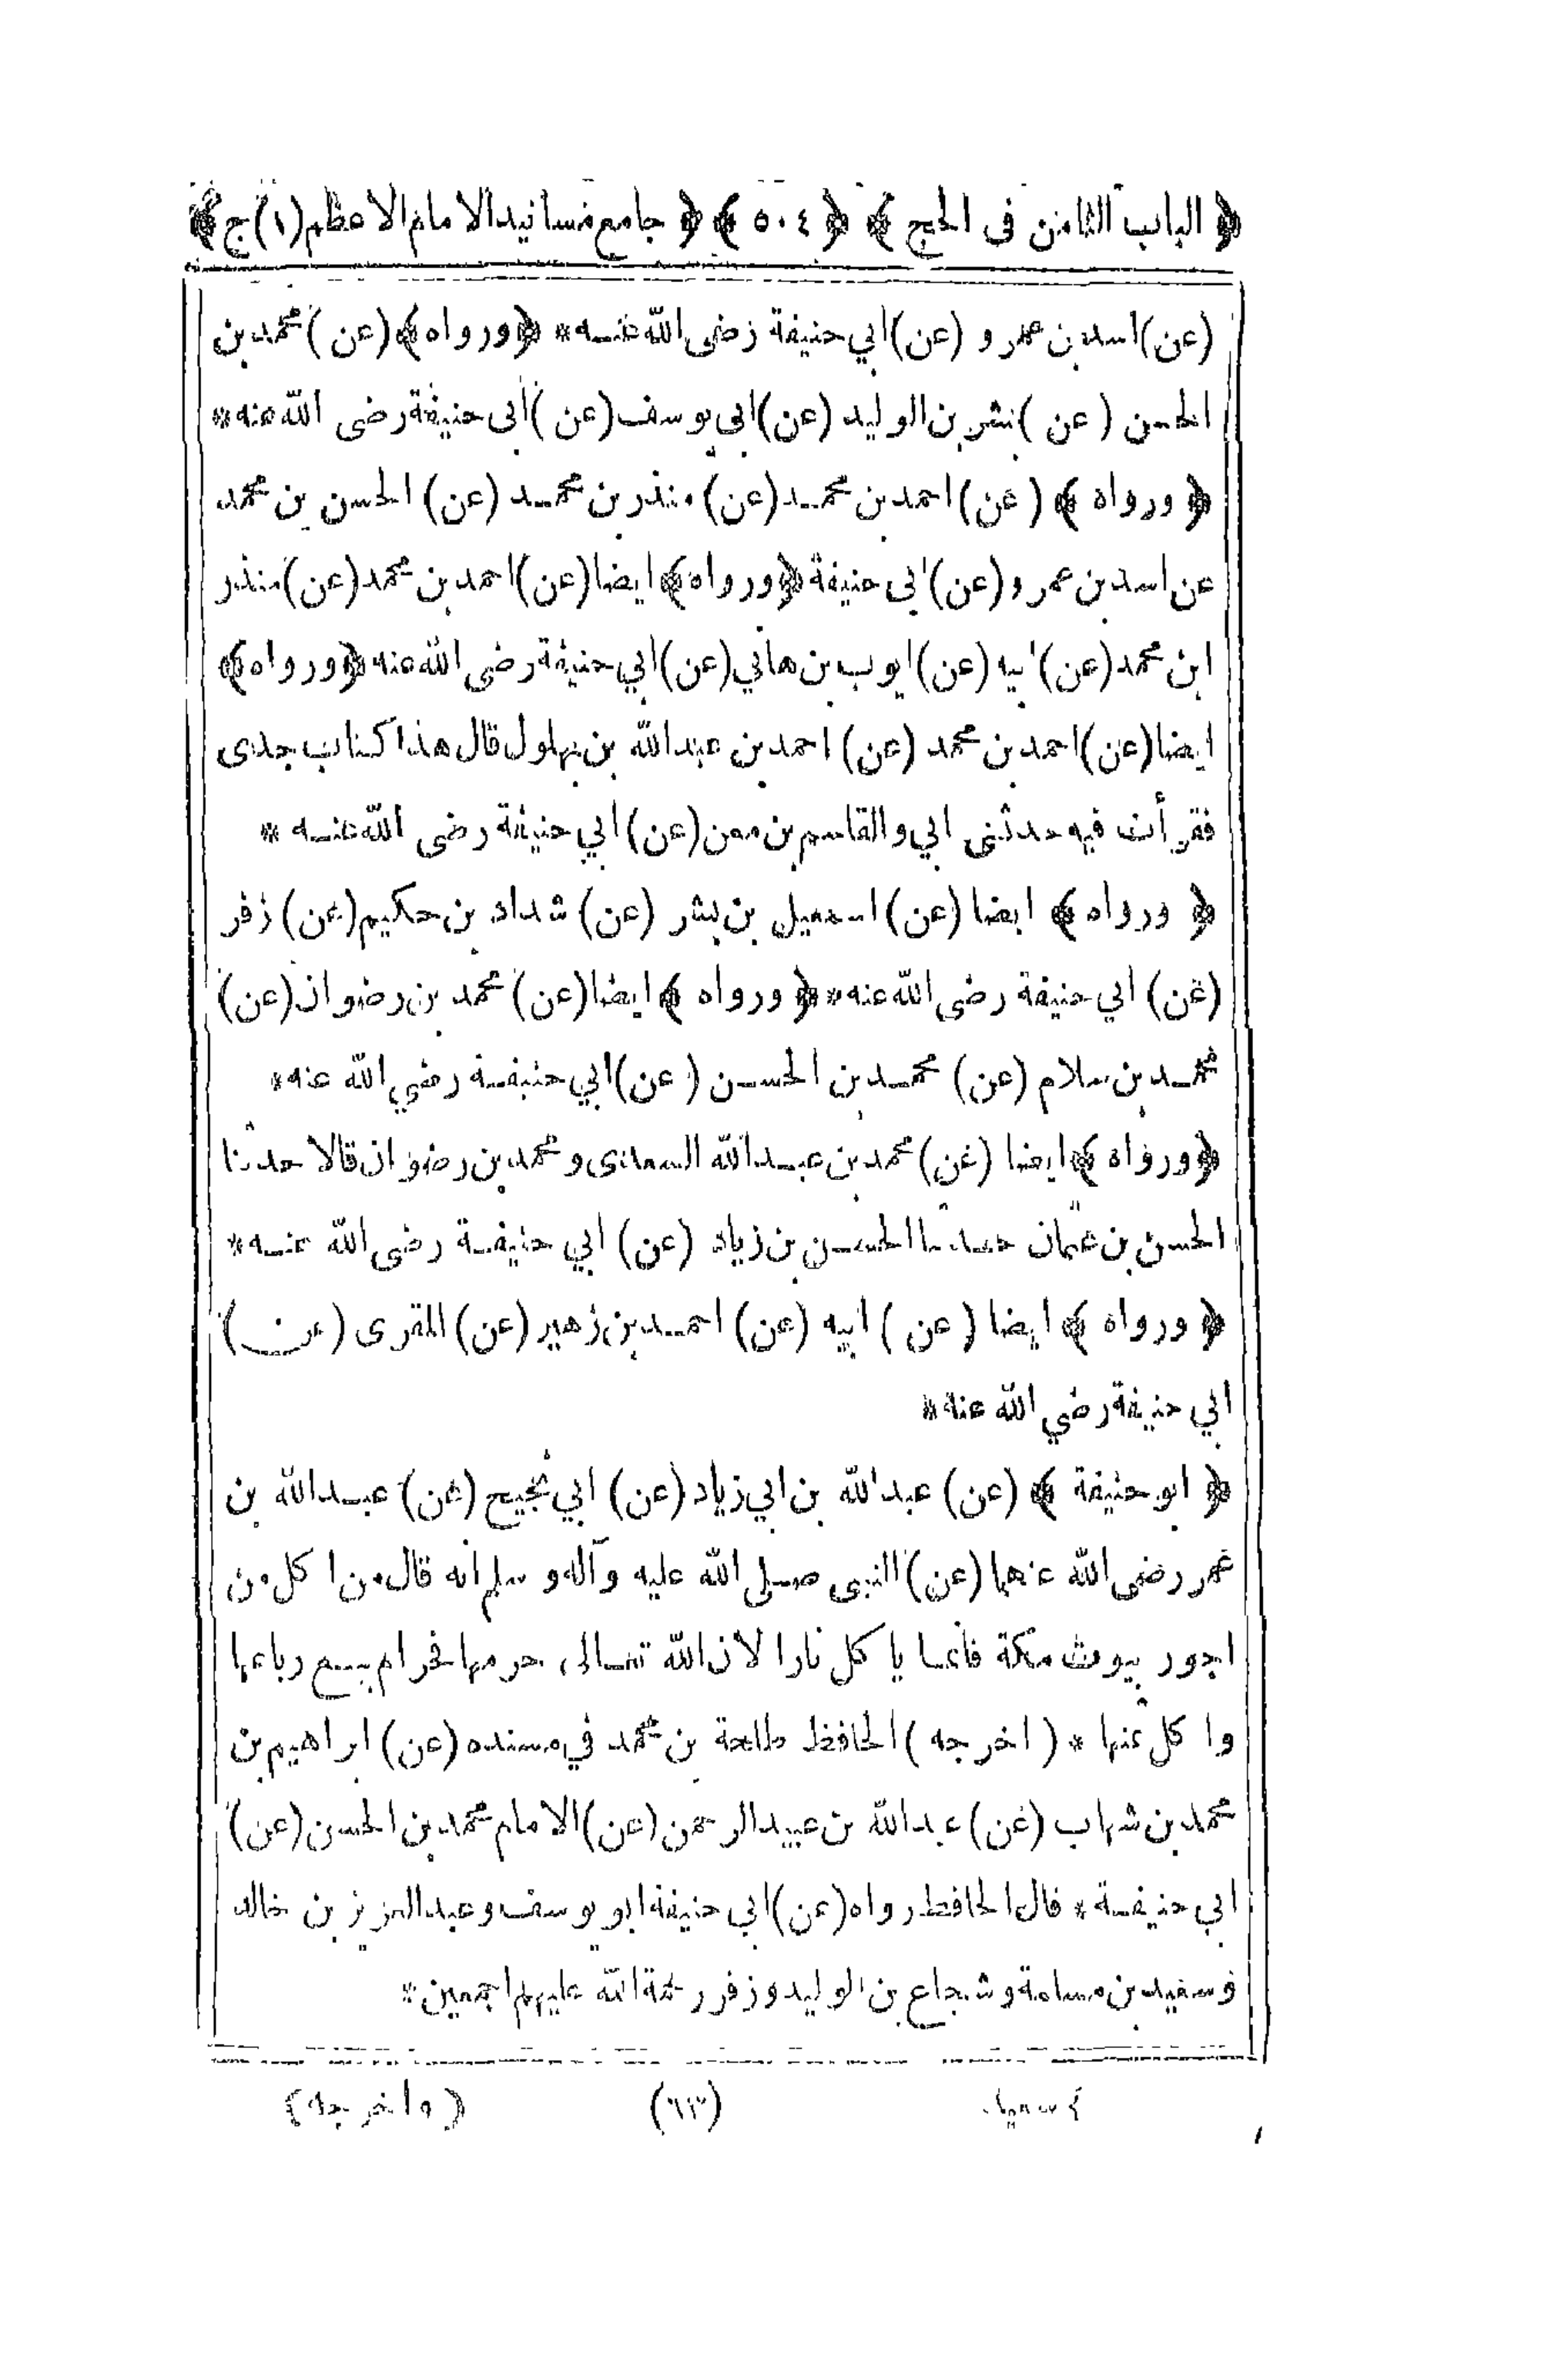 ﴿ الباب الثامن فى الحج ﴾ ﴿ ٥٠٤ ﴾ ﴿ جامع مسانيد الامام الاعظم (١) ج ﴾
(عن) اسد بن عمرو (عن) ابي حنيفة رضى الله عنه * ﴿ ورواه ﴾ (عن) محمد بن
الحسن (عن) بشر بن الوليد (عن) ابى يوسف (عن) أبى حنيفة رضى الله عنه *
﴿ ورواه ﴾ (عن) احمد بن محمد (عن) منذر بن محمد (عن) الحسن بن محمد
عن اسد بن عمرو (عن) ابى حنيفة ﴿ ورواه ﴾ ايضا (عن) احمد بن محمد (عن) منذر
ابن محمد (عن) ابيه (عن) ايوب بن هاني (عن) ابي حنيفة رضى الله عنه ﴿ ورواه ﴾
ايضا (عن) احمد بن محمد (عن) احمد بن عبد الله بن بهلول قال هذا كتاب جدى
فقرأت فيه حدثنى ابي والقاسم بن معن (عن) ابي حنيفة رضى الله عنه *
﴿ ورواه ﴾ ايضا (عن) اسمعيل بن بشر (عن) شداد بن حكيم (عن) زفر
(عن) ابي حنيفة رضى الله عنه * ﴿ ورواه ﴾ ايضا (عن) محمد بن رضوان (عن)
محمد بن سلام (عن) محمد بن الحسن (عن) ابي حنيفة رضي الله عنه *
﴿ ورواه ﴾ ايضا (عن) محمد بن عبد الله السعدى و محمد بن رضوان قالا حدثنا
الحسن بن عثمان حدثنا الحسن بن زياد (عن) ابي حنيفة رضى الله عنه *
﴿ ورواه ﴾ ايضا (عن) ابيه (عن) احمد بن زهير (عن) المقرى (عن)
ابي حنيفة رضي الله عنه *
﴿ ابو حنيفة ﴾ (عن) عبد الله بن ابي زياد (عن) ابي نجيح (عن) عبد الله بن
عمر رضى الله عنهما (عن) النبى صلى الله عليه وآله وسلم انه قال من اكل من
اجور بيوت مكة فانما يا كل نارا لان الله تعالى حرمها فحرام بيع رباعها
وا كل ثمنها * (اخرجه) الحافظ طلحة بن محمد في مسنده (عن) ابراهيم بن
محمد بن شهاب (عن) عبد الله بن عبيد الرحمن (عن) الامام محمد بن الحسن (عن)
ابي حنيفة * قال الحافظ رواه (عن) ابي حنيفة ابو يوسف وعبد العزيز بن خالد
و سعيد بن مسلمة و شجاع بن الوليد و زفر رحمة الله عليهم اجمعين *
(٦٣) (واخرجه)